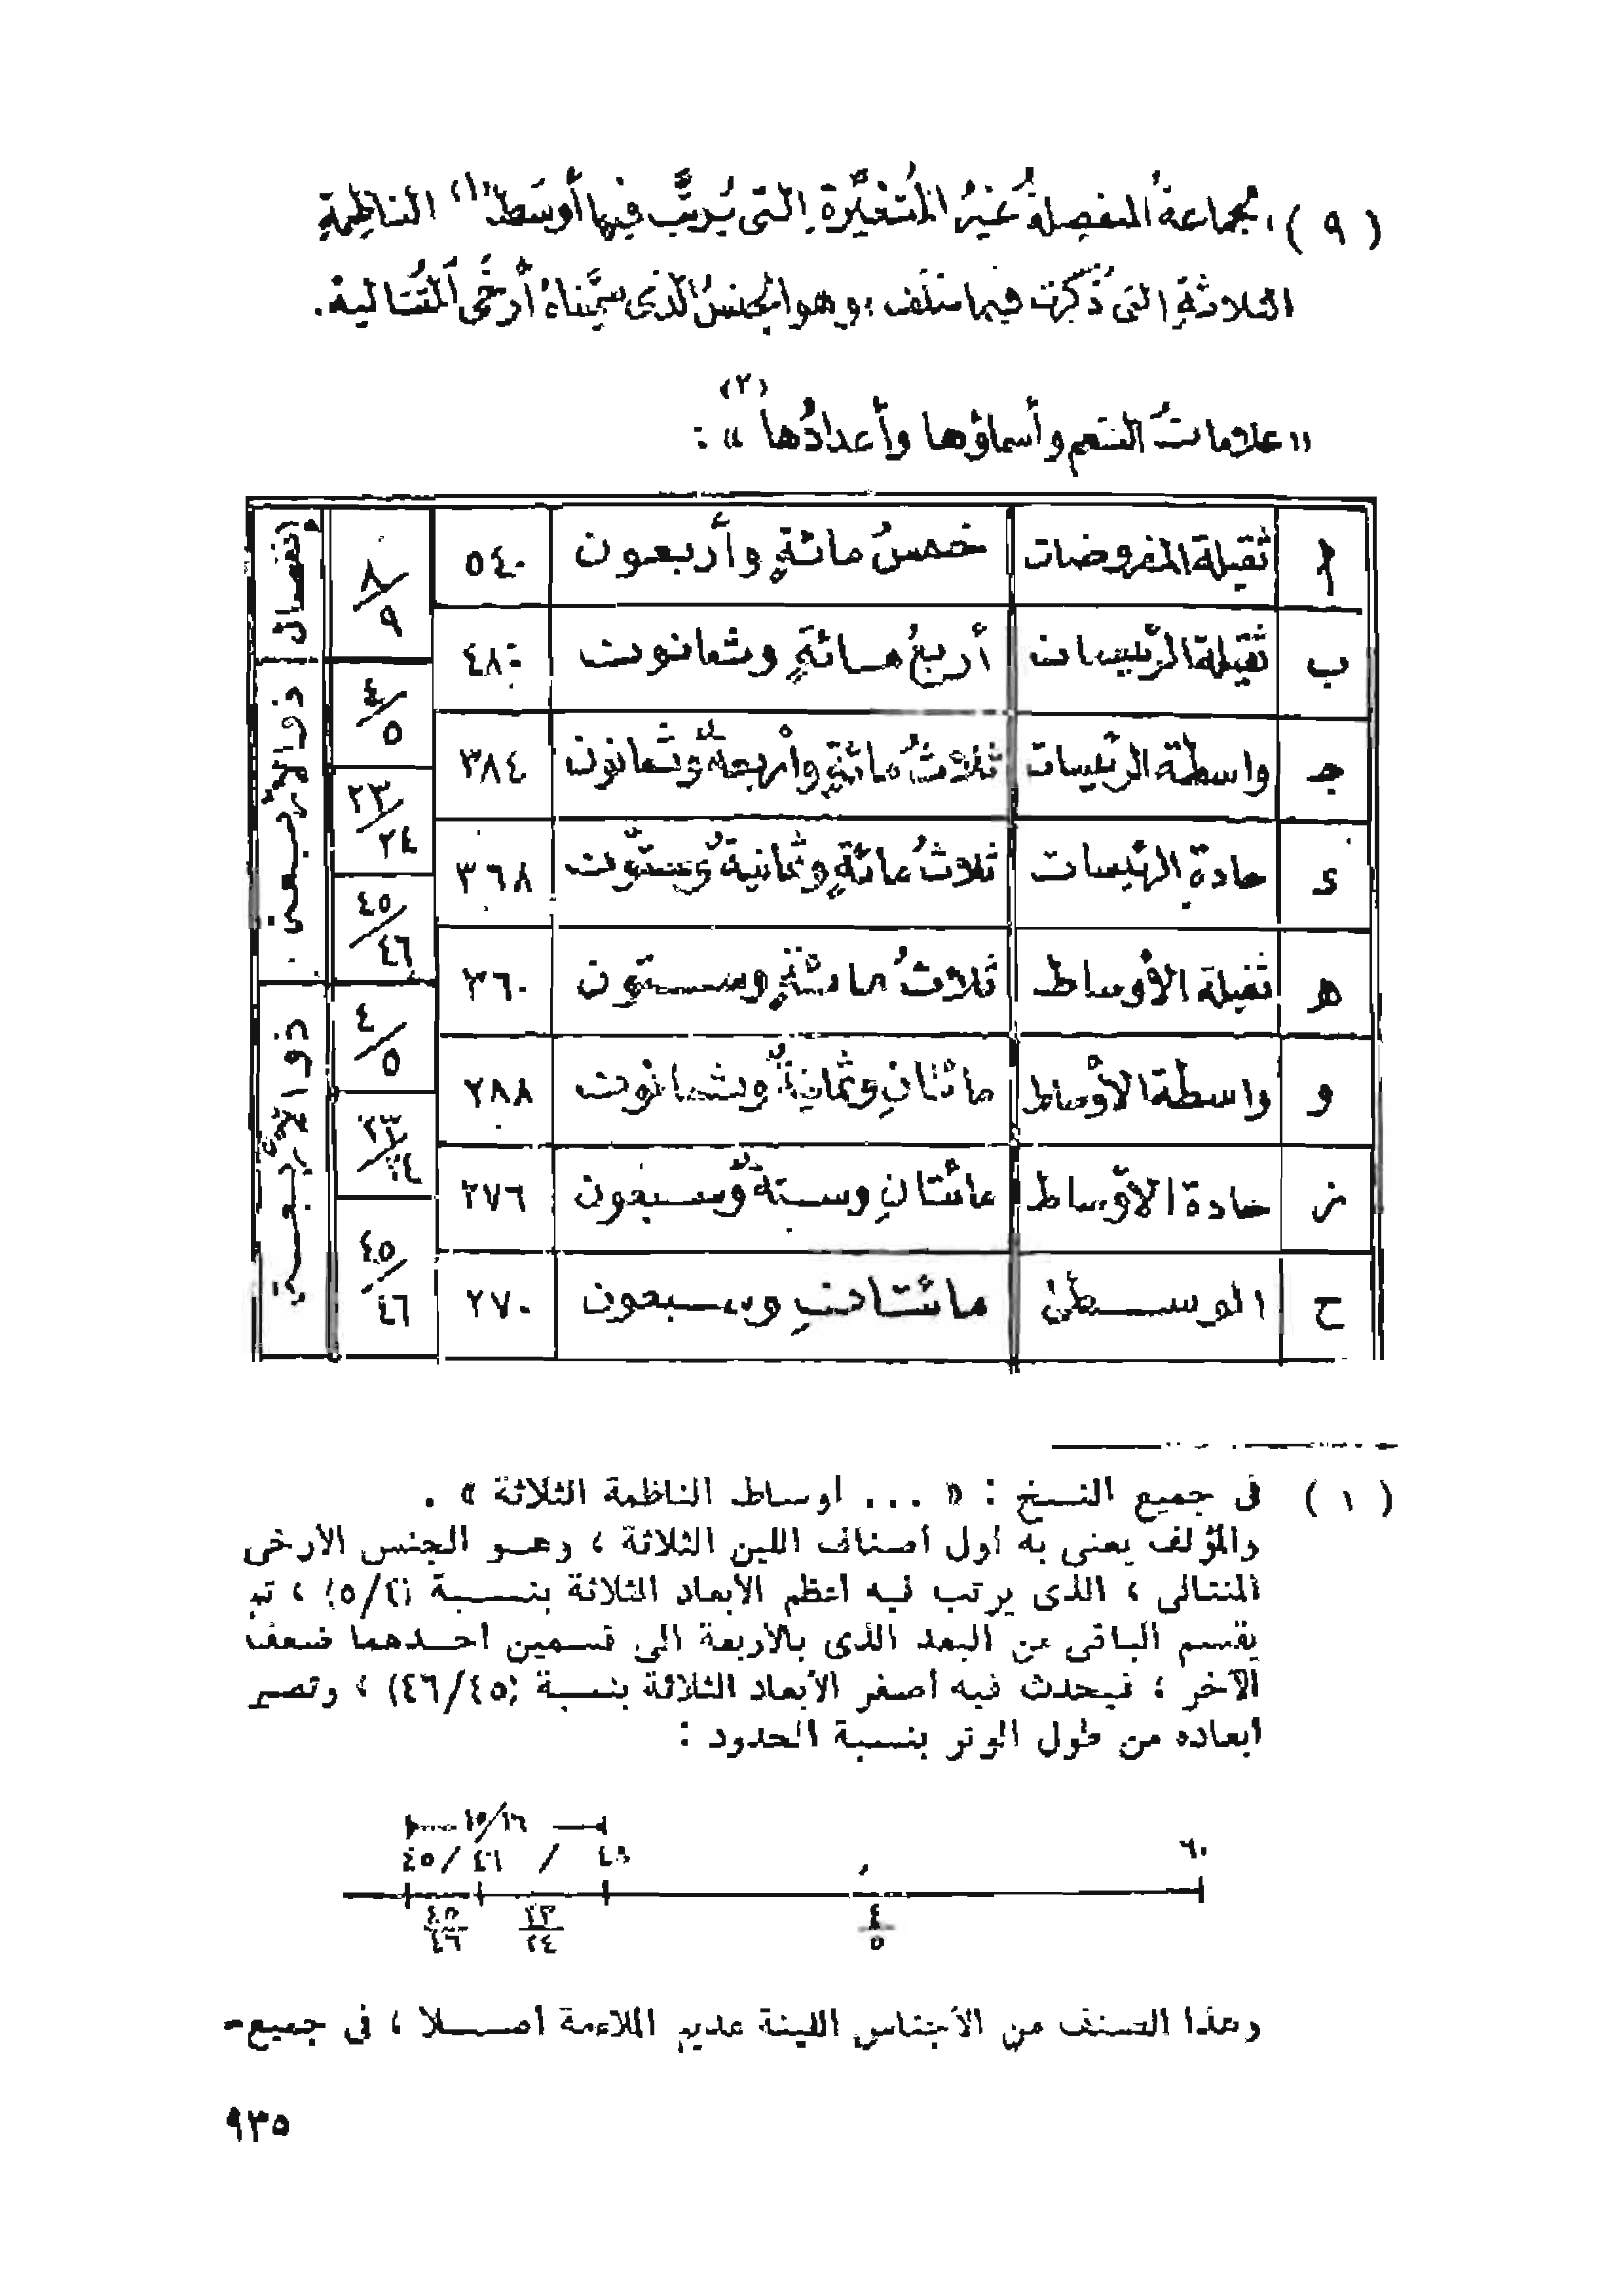 ( ٩ ) ، جماعةُ المنفصلة غيرُ المُتغيِّرة التى يُرتَّب فيها أوسَط(١) الناظمةِ
الثلاثةِ التى ذُكِرت فيما سَلَف ، وهو الجنسُ الذى سمَّيناهُ أرخَى المُتتالية .
(٢)
« علاماتُ النغم وأسماؤها وأعدادُها » :
ا | ثقيلة المفروضات | خمسُ مائةٍ وأربعون | ٥٤٠ | ٨/٩ | إنفصال
ب | ثقيلة الرئيسات | أربعُ مائةٍ وثمانون | ٤٨٠ | ٤/٥ | ذو الأربعة
جـ | واسطة الرئيسات | ثلاثُ مائةٍ وأربعةٌ وثمانون | ٣٨٤ | ٢٣/٢٤
د | حادة الرئيسات | ثلاثُ مائةٍ وثمانيةٌ وستّون | ٣٦٨ | ٤٥/٤٦
هـ | ثقيلة الأوساط | ثلاثُ مائةٍ وستون | ٣٦٠ | ٤/٥ | ذو الأربعة
و | واسطة الأوساط | مائتانِ وثمانيةٌ وثمانون | ٢٨٨ | ٢٣/٢٤
ز | حادة الأوساط | مائتانِ وستةٌ وسبعون | ٢٧٦ | ٤٥/٤٦
ح | الوسطىٰ | مائتانِ وسبعون | ٢٧٠
( ١ ) فى جميع النسخ : « ... اوساط الناظمة الثلاثة » .
والمؤلف يعنى به أول أصناف اللين الثلاثة ، وهو الجنس الأرخى
المتتالى ، الذى يرتب فيه أعظم الأبعاد الثلاثة بنسبة (٥/٤) ، ثم
يقسم الباقى من البعد الذى بالأربعة الى قسمين أحدهما ضعف
الآخر ، فيحدث فيه أصغر الأبعاد الثلاثة بنسبة (٤٦/٤٥) ، وتصير
أبعاده من طول الوتر بنسبة الحدود :
١٥/١٦
٤٥ / ٤٦ / ٤٨ ٦٠
٤٥/٤٦ ٢٣/٢٤ ٤/٥
وهذا الصنف من الأجناس اللينة عديم الملاءمة أصلا ، فى جميع-
٩٣٥